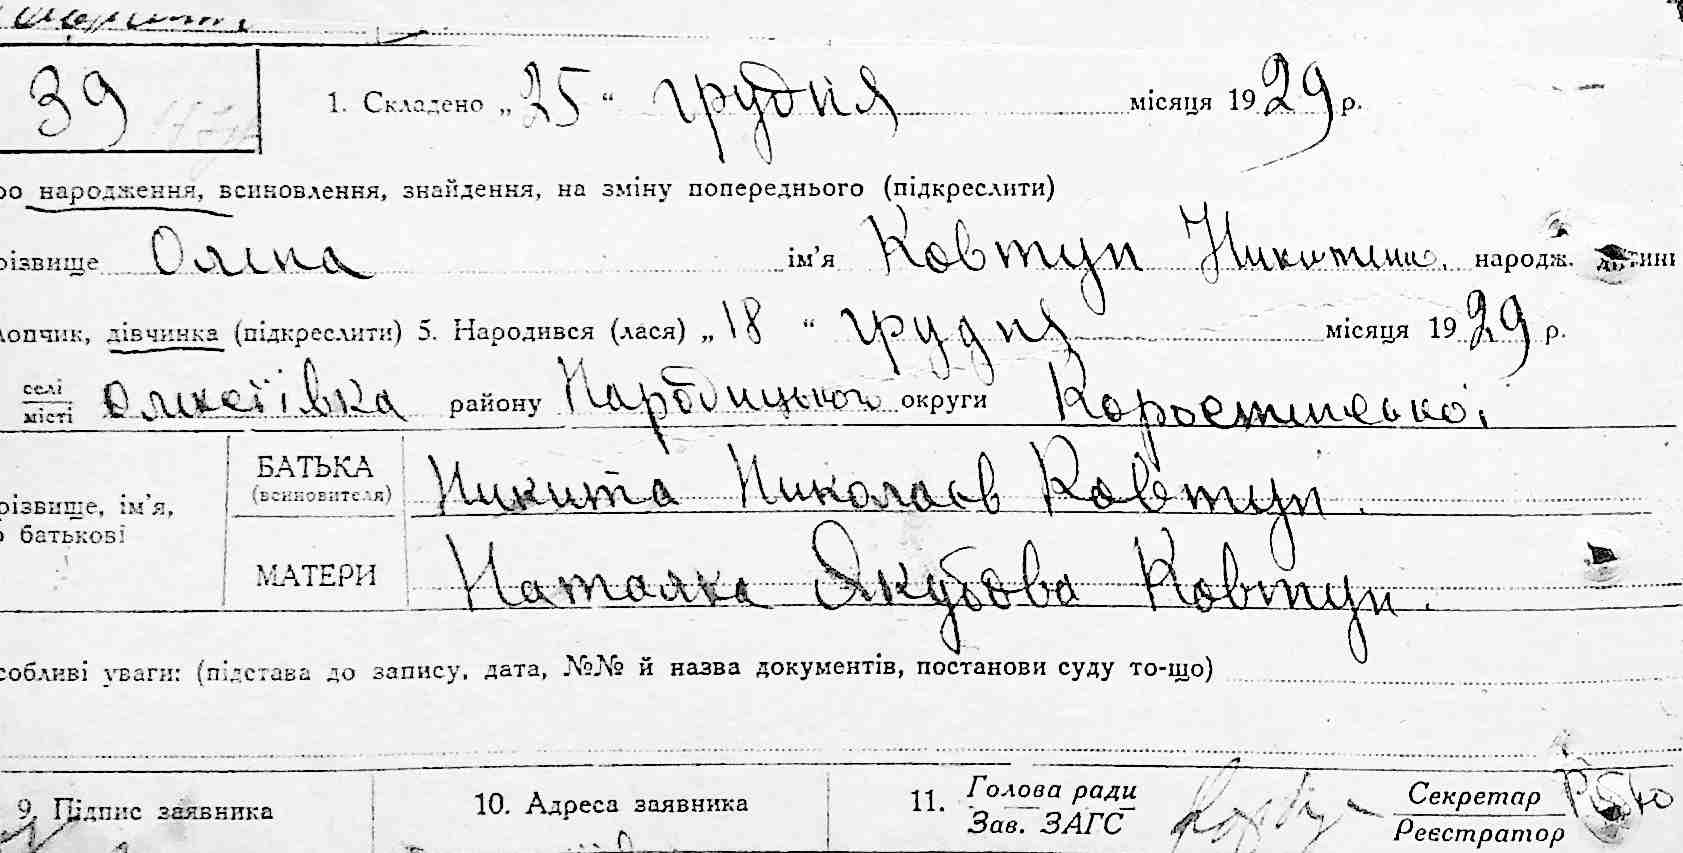 39
1. Складено „25“ грудня місяця 1929 р.
ро народження, всиновлення, знайдення, на зміну попереднього (підкреслити)
різвище Олена ім'я Ковтун Никитина, народж. дитини
лопчик, дівчинка (підкреслити) 5. Народився (лася) „18“ грудня місяця 1929 р.
селі місті Олексіївка району Народицького округи Коростенської
різвище, ім'я, о батькові
БАТЬКА (всиновителя) Никита Николаєв Ковтун.
МАТЕРИ Наталка Якубова Ковтун.
собливі уваги: (підстава до запису, дата, №№ й назва документів, постанови суду то-що)
9. Підпис заявника 10. Адреса заявника 11. Голова ради Зав. ЗАГС Секретар Реєстратор